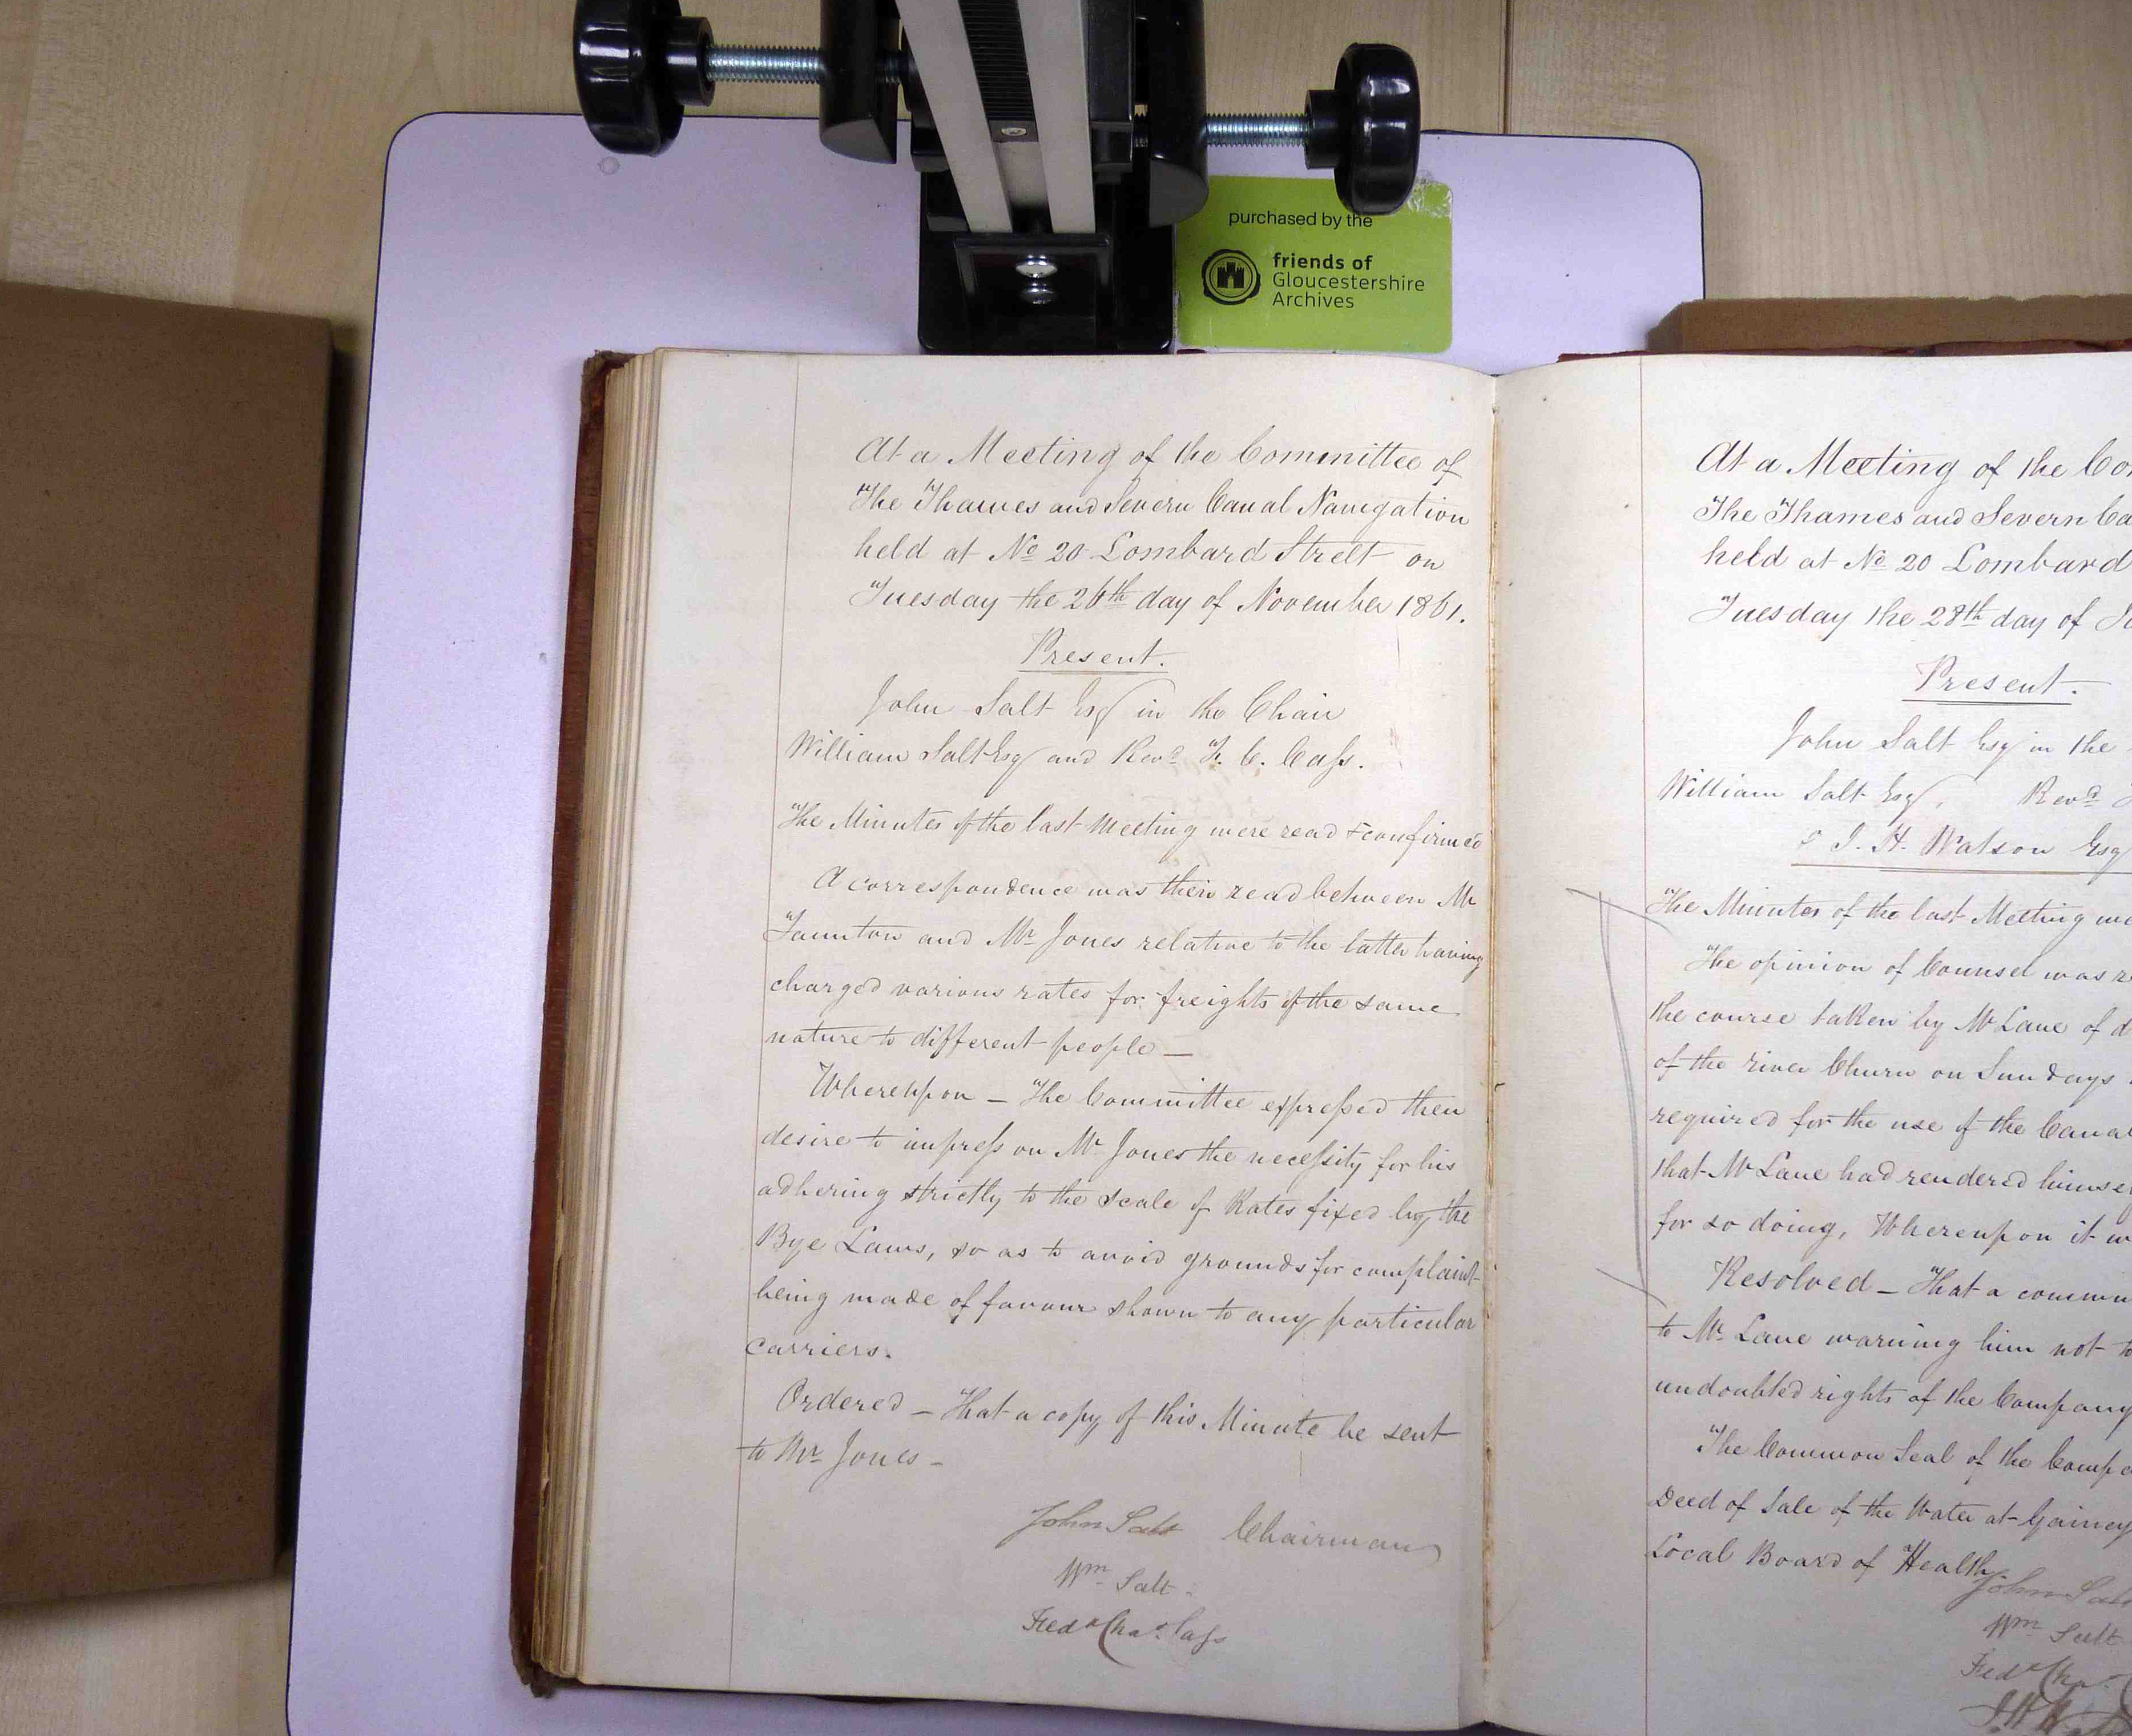 purchased by the
friends of
Gloucestershire
Archives
At a Meeting of the Committee of
The Thames and Severn Canal Navigation
held at No 20 Lombard Street on
Tuesday the 26th day of November 1861.
Present.
John Salt Esq in the Chair
William Salt Esq and Revd F. C. Cass.
The Minutes of the last Meeting were read & confirmed
A correspondence was then read between Mr
Taunton and Mr Jones relative to the latter having
charged various rates for freights of the same
nature to different people —
Whereupon — The Committee expressed their
desire to impress on Mr Jones the necessity for his
adhering strictly to the scale of Rates fixed by the
Bye Laws, so as to avoid grounds for complaint
being made of favour shown to any particular
carriers.
Ordered — That a copy of this Minute be sent
to Mr Jones —
John Salt Chairman
Wm Salt
Fredk Chas Cass
At a Meeting of the Co
The Thames and Severn Ca
held at No 20 Lombard
Tuesday the 28th day of
Present.
John Salt Esq in the
William Salt Esq, Revd
& J. H. Watson Esq
The Minutes of the last Meeting we
The opinion of Counsel was r
the course taken by Mr Lane of d
of the river Churn on Sundays
required for the use of the Canal
that Mr Lane had rendered himse
for so doing, Whereupon it w
Resolved — That a commu
to Mr Lane warning him not to
undoubted rights of the Company
The Common Seal of the Comp
Deed of Sale of the Water at Gainey
Local Board of Health
John Salt
Wm Salt
Fredk Chas